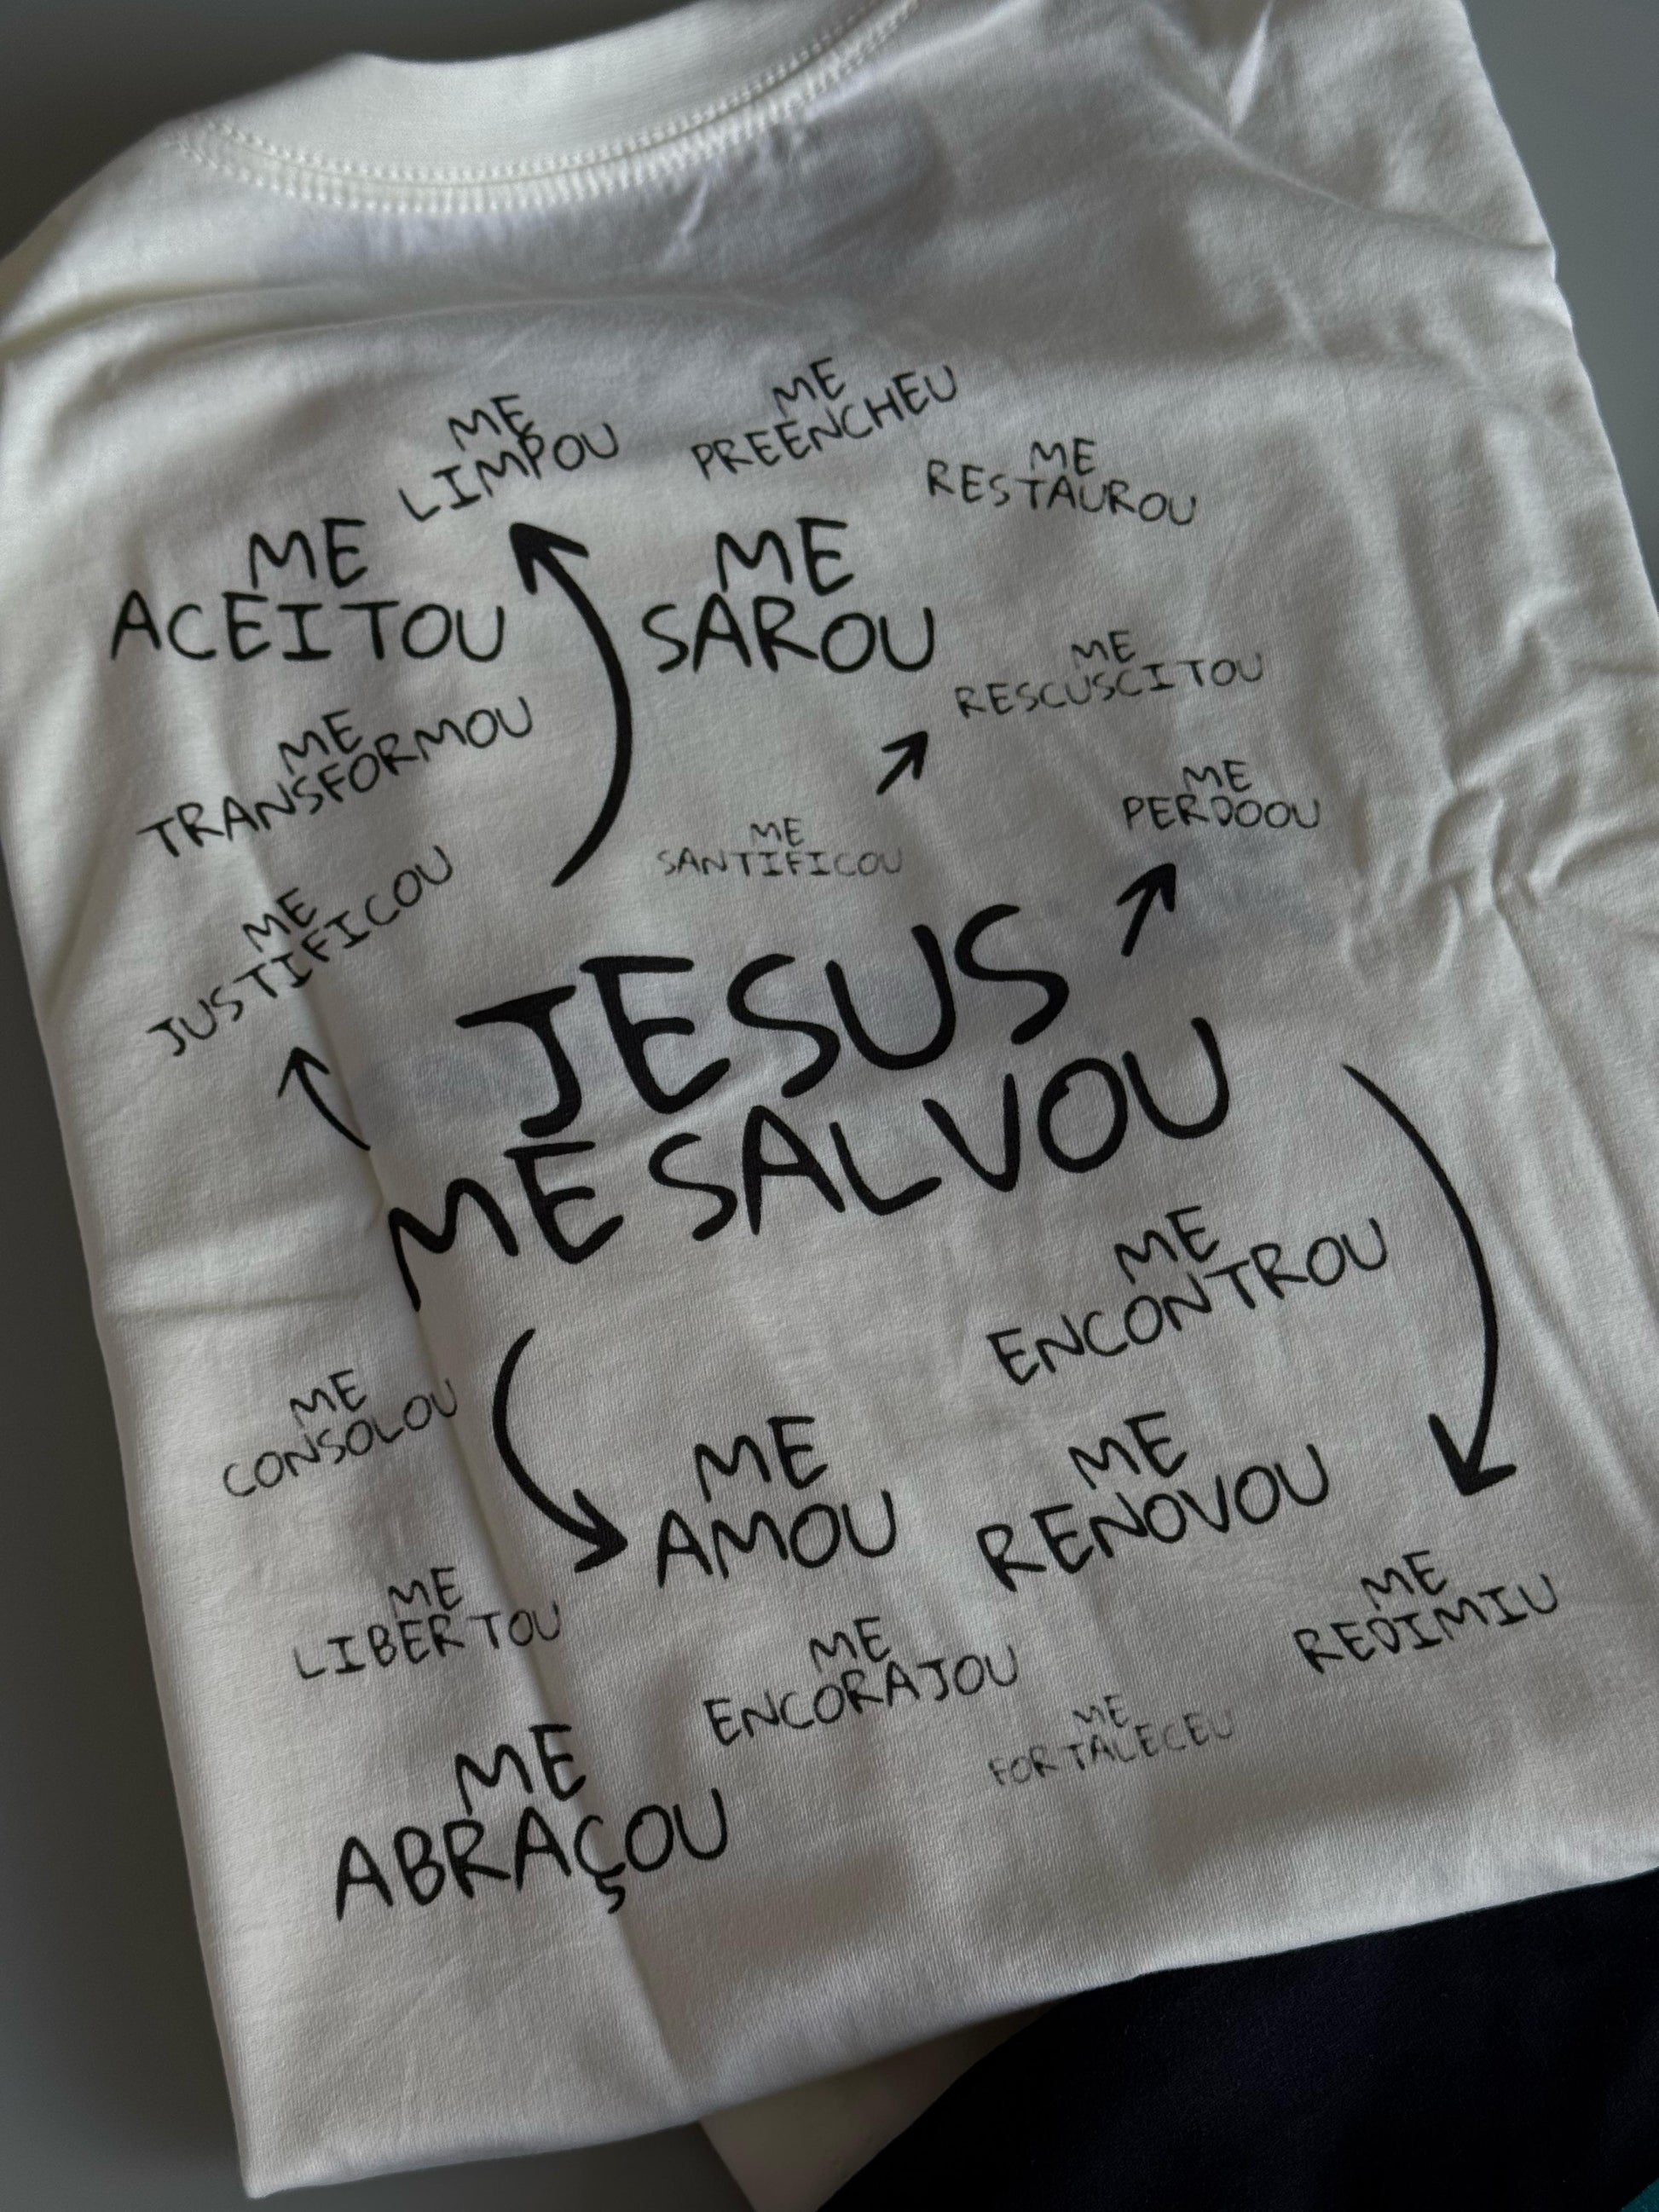 ME
LIMPOU
ME
PREENCHEU
ME
RESTAUROU
ME
ACEITOU
ME
SAROU
ME
RESCUSCITOU
ME
TRANSFORMOU
ME
PERDOOU
ME
SANTIFICOU
ME
JUSTIFICOU
JESUS
ME SALVOU
ME
ENCONTROU
ME
CONSOLOU
ME
AMOU
ME
RENOVOU
ME
LIBERTOU
ME
ENCORAJOU
ME
REDIMIU
ME
FORTALECEU
ME
ABRAÇOU